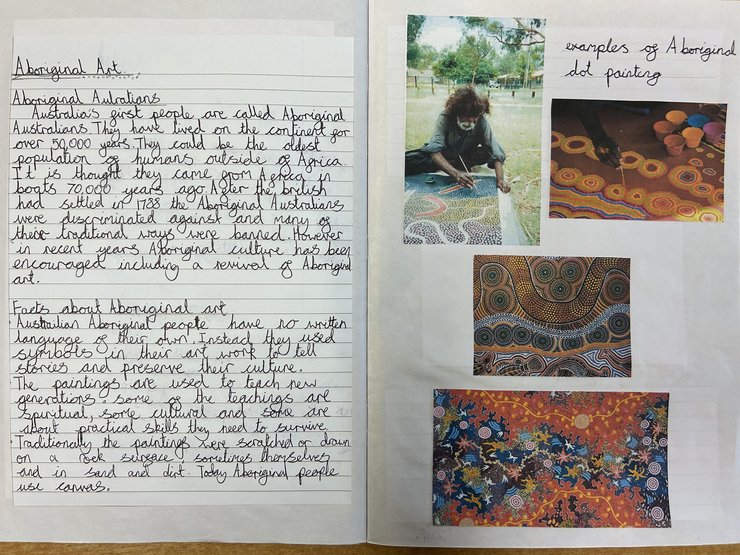 Aboriginal Art
Aboriginal Aulratians
Australia's first people are called Aboriginal
Australians. They have lived on the continent for
over 50,000 years. They could be the oldest
population of humans outside of Africa.
It is thought they came from Africa in
boats 70,000 years ago. After the british
had settled in 1788 the Aboriginal Australians
were discriminated against and many of
their traditional ways were banned. However
in recent years Aboriginal culture has been
encouraged including a revival of Aboriginal
art.
Facts about Aboriginal art
• Austrailian Aboriginal people have no written
language of their own. Instead they used
symbols in their art work to tell
stories and preserve their culture.
• The paintings are used to teach new
generations some of the teachings are
spiritual, some cultural and some are
about practical skills they need to survive.
• Traditionally the paintings were scratched or drawn
on a rock surface sometimes themselves
and in sand and dirt. Today Aboriginal people
use canvas.
examples of Aboriginal
dot painting